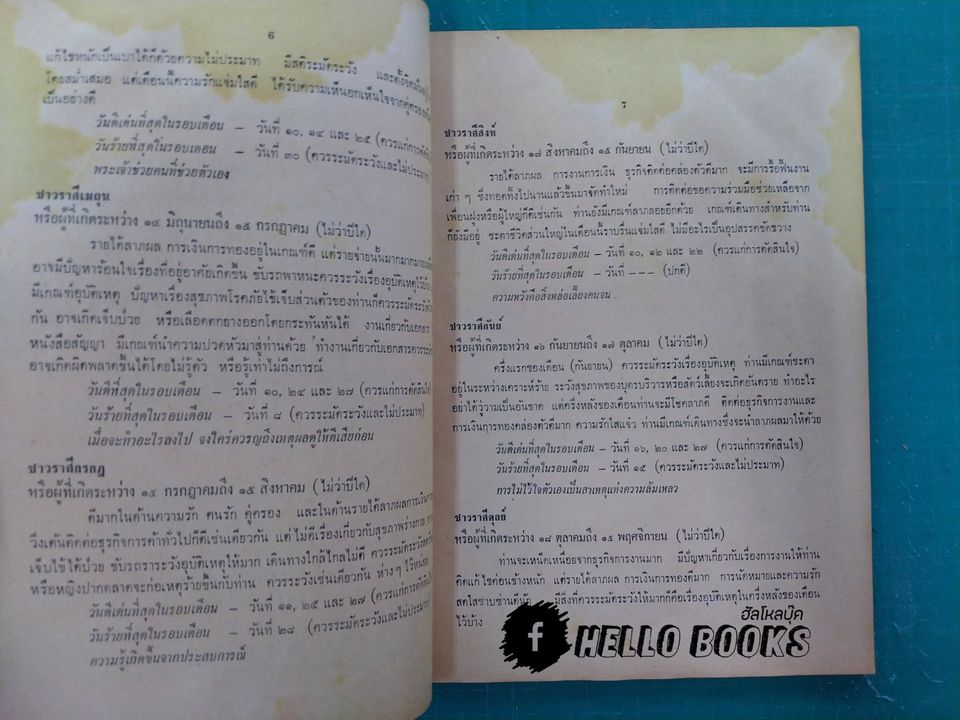 ๖
แก้ไขหนักเป็นเบาได้ก็ด้วยความไม่ประมาท มีสติระมัดระวัง และตั้งจิตมั่น
โดยสม่ำเสมอ แต่เดือนนี้ความรักแจ่มใสดี ได้รับความเห็นอกเห็นใจจากคู่ครอง
เป็นอย่างดี
วันดีเด่นที่สุดในรอบเดือน – วันที่ ๑๐, ๑๔ และ ๒๕ (ควรแก่การตัด
วันร้ายที่สุดในรอบเดือน – วันที่ ๓๐ (ควรระมัดระวังและไม่ประมาท)
พระเจ้าช่วยคนที่ช่วยตัวเอง
ชาวราศีเมถุน
หรือผู้ที่เกิดระหว่าง ๑๔ มิถุนายนถึง ๑๕ กรกฎาคม (ไม่ว่าปีใด)
รายได้ลาภผล การเงินการทองอยู่ในเกณฑ์ดี แต่รายจ่ายนั้นมากมาย
อาจมีปัญหาร้อนใจเรื่องที่อยู่อาศัยเกิดขึ้น ขับรถพาหนะควรระวังเรื่องอุบัติเหตุไว้บ้าง
มีเกณฑ์อุบัติเหตุ ปัญหาเรื่องสุขภาพโรคภัยไข้เจ็บส่วนตัวของท่านก็ควรระมัดระวัง
กัน อาจเกิดเจ็บป่วย หรือเลือดตกยางออกโดยกระทันหันได้ งานเกี่ยวกับเอกสาร
หนังสือสัญญา มีเกณฑ์นำความปวดหัวมาสู่ท่านด้วย ทำงานเกี่ยวกับเอกสารควรระมัด
อาจเกิดผิดพลาดขึ้นได้โดยไม่รู้ตัว หรือรู้เท่าไม่ถึงการณ์
วันดีที่สุดในรอบเดือน – วันที่ ๑๐, ๒๔ และ ๒๗ (ควรแก่การตัดสินใจ)
วันร้ายที่สุดในรอบเดือน – วันที่ ๘ (ควรระมัดระวังและไม่ประมาท)
เมื่อจะทำอะไรลงไป จงใคร่ครวญถึงเหตุผลดูให้ดีเสียก่อน
ชาวราศีกรกฎ
หรือผู้ที่เกิดระหว่าง ๑๕ กรกฎาคมถึง ๑๕ สิงหาคม (ไม่ว่าปีใด)
ดีมากในด้านความรัก คนรัก คู่ครอง และในด้านรายได้ลาภผลการเงิน
วิ่งเต้นติดต่อธุรกิจการค้าทั่วไปก็ดีเช่นเดียวกัน แต่ไม่ดีเรื่องเกี่ยวกับสุขภาพร่างกาย
เจ็บไข้ได้ป่วย ขับรถราระวังอุบัติเหตุให้มาก เดินทางใกล้ไกลไม่ดี ควรระมัดระวัง
หรือหญิงปากตลาดจะก่อเหตุร้ายขึ้นกับท่าน ควรระวังเช่นเดียวกัน ห่าง ๆ ไว้หน่อย
วันดีเด่นที่สุดในรอบเดือน – วันที่ ๑๑, ๒๕ และ ๒๗ (ควรแก่การตัดสินใจ)
วันร้ายที่สุดในรอบเดือน – วันที่ ๒๘ (ควรระมัดระวังและไม่ประมาท)
ความรู้เกิดขึ้นจากประสบการณ์
๗
ชาวราศีสิงห์
หรือผู้ที่เกิดระหว่าง ๑๗ สิงหาคมถึง ๑๕ กันยายน (ไม่ว่าปีใด)
รายได้ลาภผล การงานการเงิน ธุรกิจติดต่อคล่องตัวดีมาก จะมีการรื้อฟื้นงาน
เก่า ๆ ซึ่งทอดทิ้งไปนานแล้วขึ้นมาจัดทำใหม่ การติดต่อขอความร่วมมือช่วยเหลือจาก
เพื่อนฝูงหรือผู้ใหญ่ก็ดีเช่นกัน ท่านยังมีเกณฑ์ลาภลอยอีกด้วย เกณฑ์เดินทางสำหรับท่าน
ก็ยังมีอยู่ ชะตาชีวิตส่วนใหญ่ในเดือนนี้ราบรื่นแจ่มใสดี ไม่มีอะไรเป็นอุปสรรคขัดขวาง
วันดีเด่นที่สุดในรอบเดือน – วันที่ ๑๐, ๑๒ และ ๒๒ (ควรแก่การตัดสินใจ)
วันร้ายที่สุดในรอบเดือน – วันที่ – – – (ปกติ)
ความหวังคือสิ่งหล่อเลี้ยงคนจน
ชาวราศีกันย์
หรือผู้ที่เกิดระหว่าง ๑๖ กันยายนถึง ๑๗ ตุลาคม (ไม่ว่าปีใด)
ครึ่งแรกของเดือน (กันยายน) ควรระมัดระวังเรื่องอุบัติเหตุ ท่านมีเกณฑ์ชะตา
อยู่ในระหว่างเคราะห์ร้าย ระวังสุขภาพของบุตรบริวารหรือสัตว์เลี้ยงจะเกิดอันตราย ทำอะไร
อย่าได้วู่วามเป็นอันขาด แต่ครึ่งหลังของเดือนท่านจะมีโชคลาภดี ติดต่อธุรกิจการงานและ
การเงินการทองคล่องตัวดีมาก ความรักใสแจ๋ว ท่านมีเกณฑ์เดินทางซึ่งจะนำลาภผลมาให้ด้วย
วันดีเด่นที่สุดในรอบเดือน – วันที่ ๑๖, ๒๐ และ ๒๗ (ควรแก่การตัดสินใจ)
วันร้ายที่สุดในรอบเดือน – วันที่ ๑๕ (ควรระมัดระวังและไม่ประมาท)
การไม่ไว้ใจตัวเองเป็นสาเหตุแห่งความล้มเหลว
ชาวราศีตุลย์
หรือผู้ที่เกิดระหว่าง ๑๘ ตุลาคมถึง ๑๕ พฤศจิกายน (ไม่ว่าปีใด)
ท่านจะเหน็ดเหนื่อยจากธุรกิจการงานมาก มีปัญหาเกี่ยวกับเรื่องการงานให้ท่าน
คิดแก้ไขค่อนข้างหนัก แต่รายได้ลาภผล การเงินการทองดีมาก การนัดหมายและความรัก
สดใสซาบซ่านดีนัก มีสิ่งที่ควรระมัดระวังให้มากก็คือเรื่องอุบัติเหตุในครึ่งหลังของเดือน
ไว้บ้าง
ฮัลโหลบุ๊ค
f HELLO BOOKS